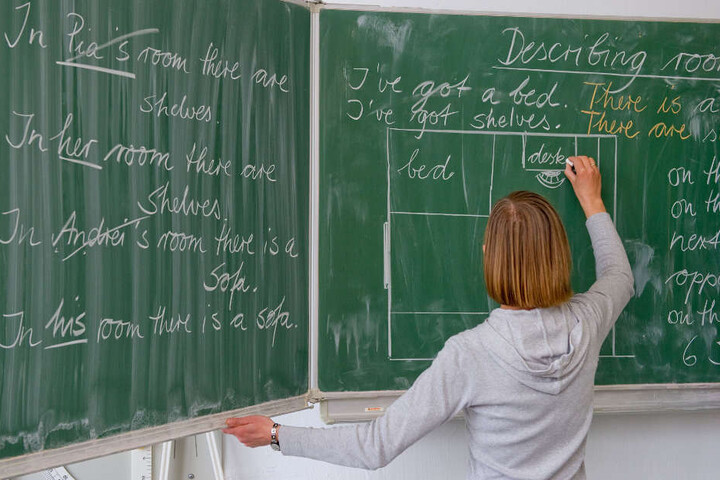 In Pia's room there are
shelves.
In her room there are
Shelves.
In Andrei's room there is a
Sofa.
In his room there is a sofa.
Describing room
I've got a bed. There is a
I've got shelves. There are s
bed
desk
on th
on th
next
opp
on th
6